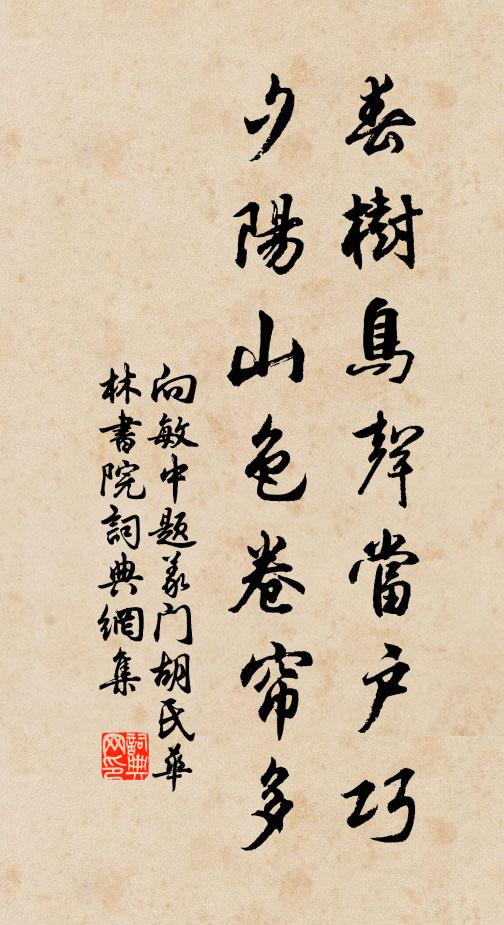 春樹鳥聲當户巧
夕陽山色卷帘多
向敏中題义门胡氏華
林書院詞典網集
詞典网印